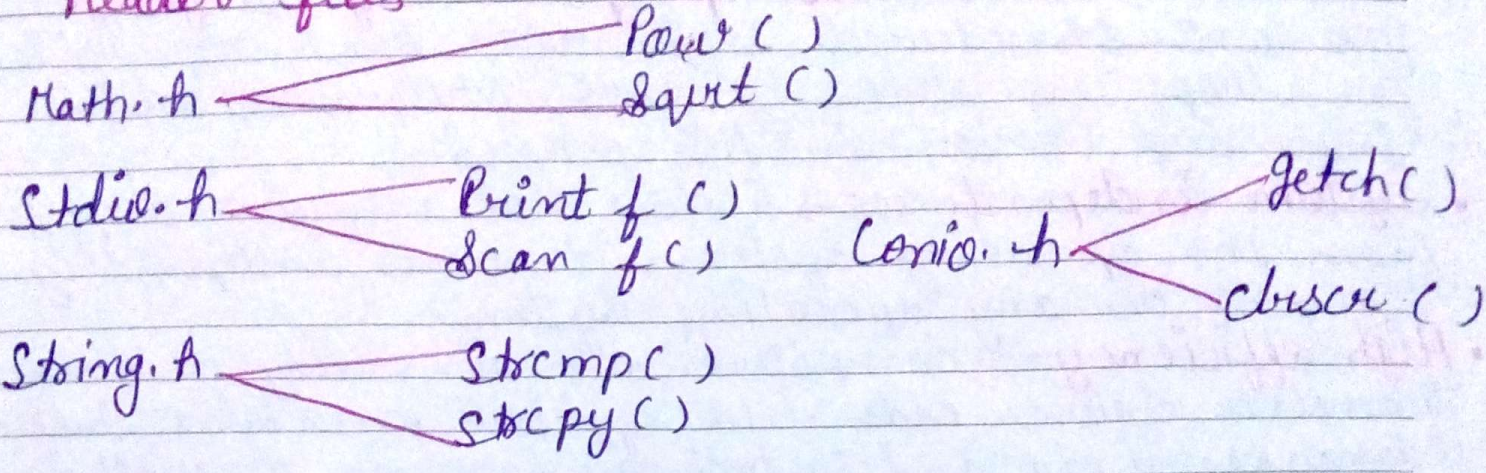 Header files
Pow ()
Math.h
Sqrt ()
Stdio.h
Print f ()
Scan f ()
Conio.h
getch()
clrscr ()
String.h
Strcmp()
strcpy()